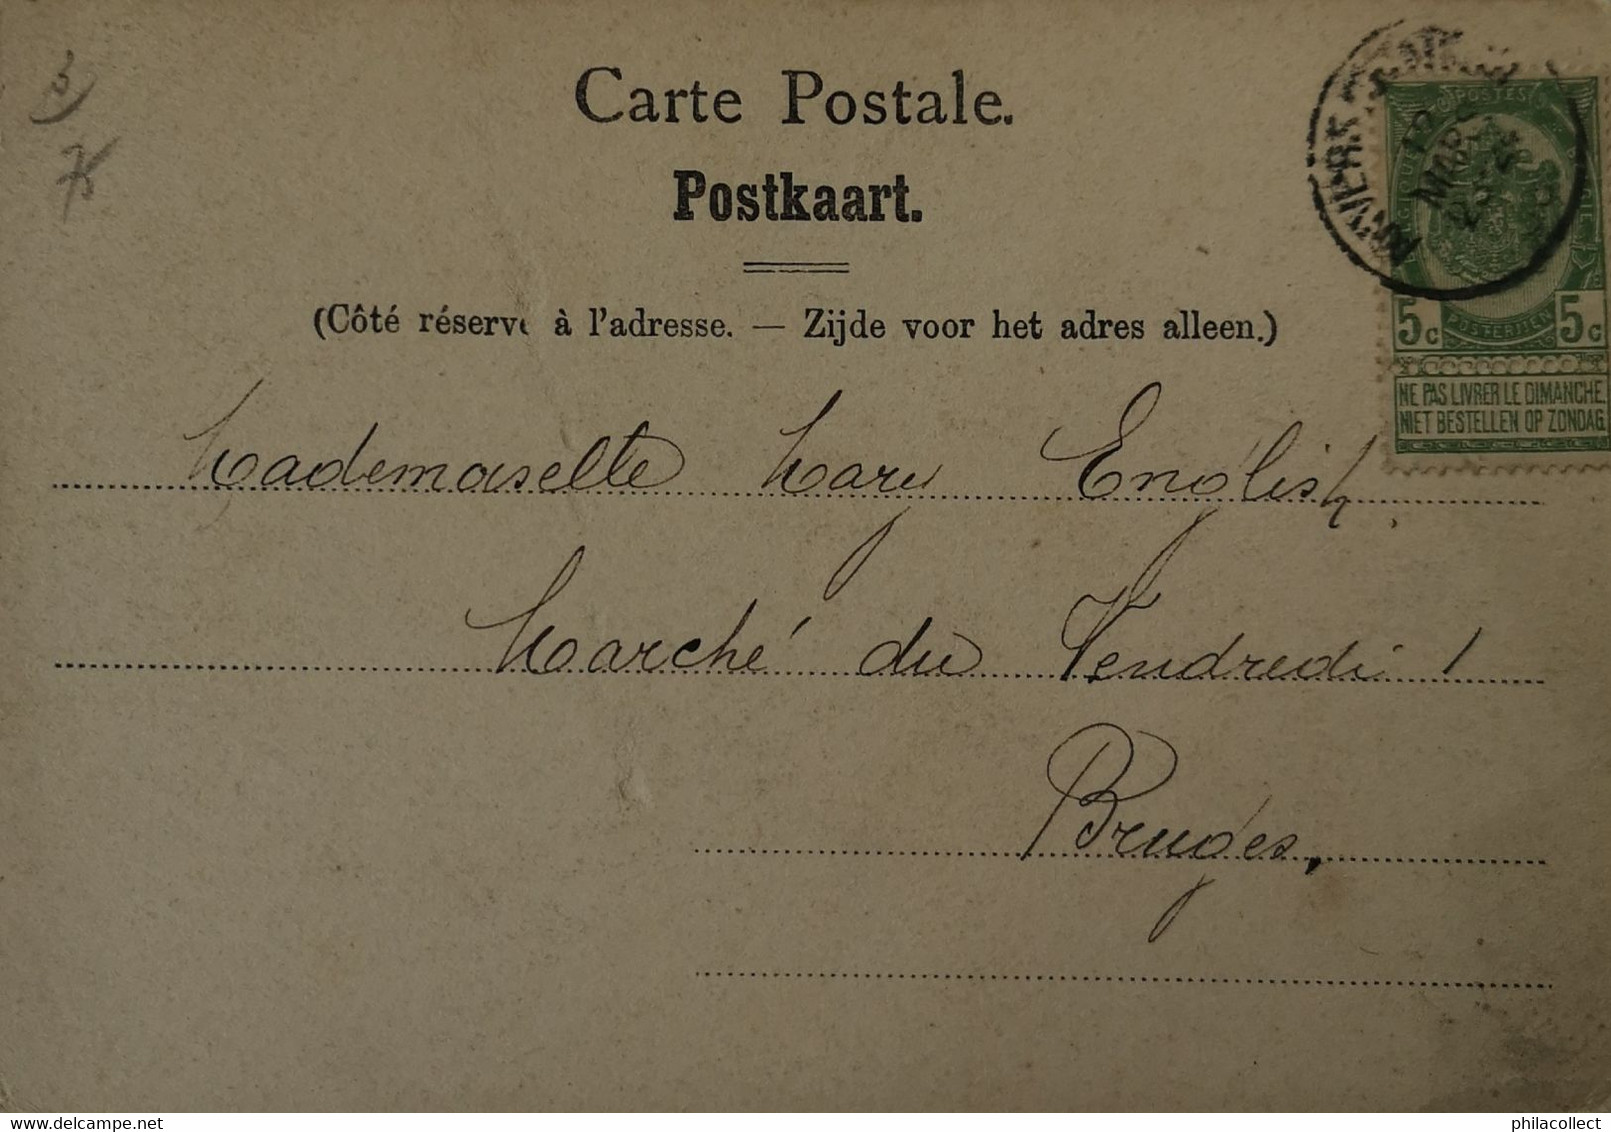 Carte Postale.
Postkaart.
(Côté réservé à l'adresse. — Zijde voor het adres alleen.)
POSTES
5c POSTERIJEN 5c
NE PAS LIVRER LE DIMANCHE.
NIET BESTELLEN OP ZONDAG.
Mademoiselle Mary English
Marché du Vendredi 1
Bruges,
philacollect